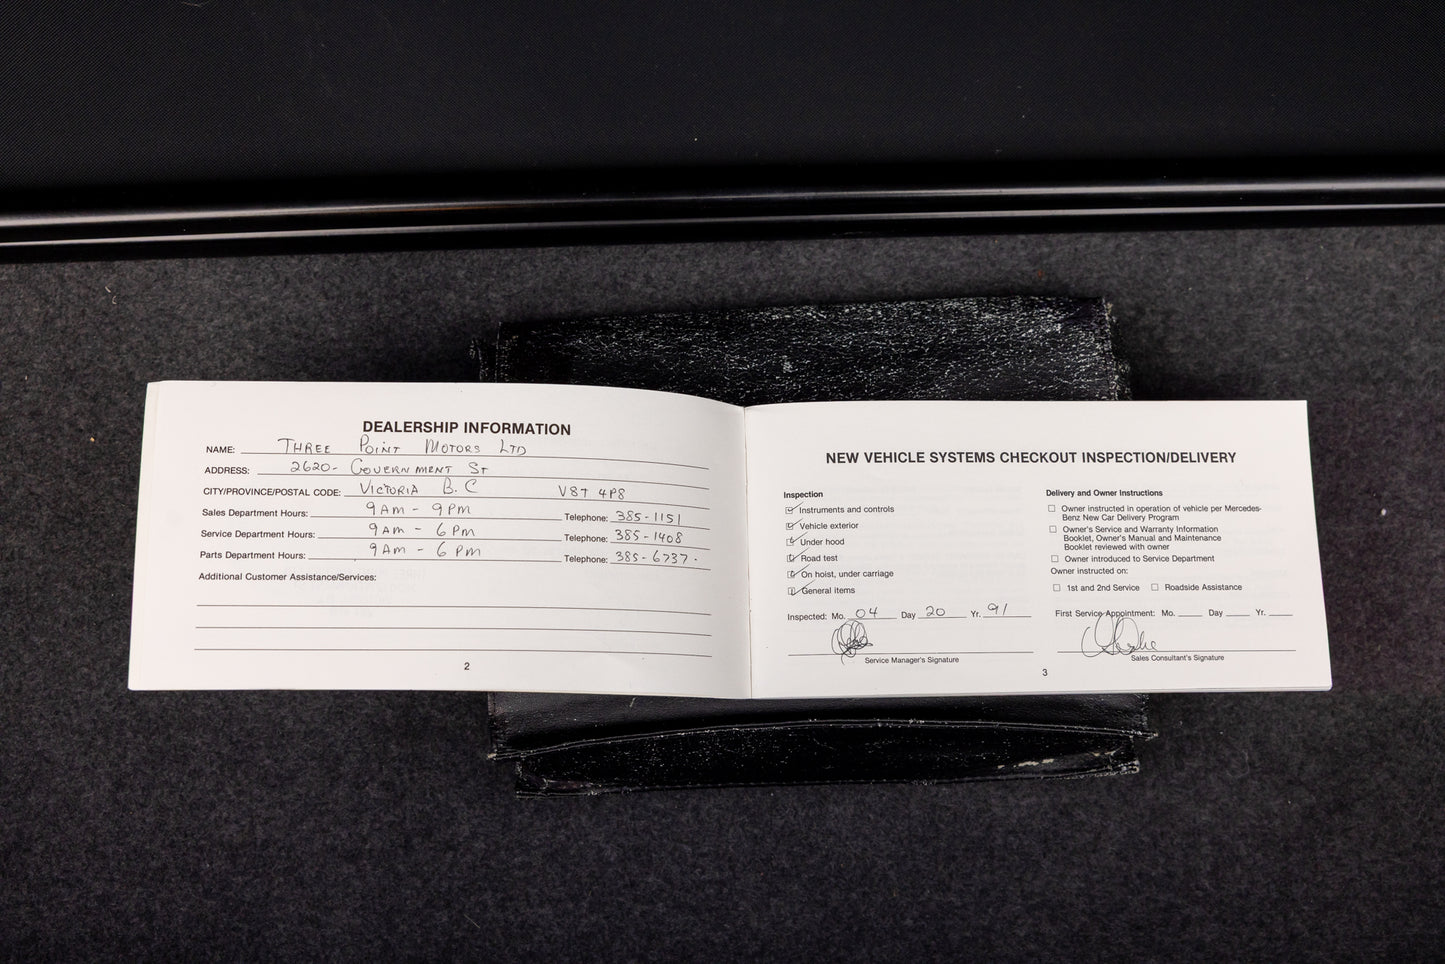 DEALERSHIP INFORMATION
NAME: THREE POINT MOTORS LTD
ADDRESS: 2620- GOVERNMENT ST
CITY/PROVINCE/POSTAL CODE: VICTORIA B.C V8T 4P8
Sales Department Hours: 9AM - 9PM Telephone: 385-1151
Service Department Hours: 9AM - 6PM Telephone: 385-1408
Parts Department Hours: 9AM - 6PM Telephone: 385-6737.
Additional Customer Assistance/Services:
2
NEW VEHICLE SYSTEMS CHECKOUT INSPECTION/DELIVERY
Inspection
Instruments and controls
Vehicle exterior
Under hood
Road test
On hoist, under carriage
General items
Inspected: Mo. 04 Day 20 Yr. 91
Service Manager's Signature
Delivery and Owner Instructions
Owner instructed in operation of vehicle per Mercedes-
Benz New Car Delivery Program
Owner's Service and Warranty Information
Booklet, Owner's Manual and Maintenance
Booklet reviewed with owner
Owner introduced to Service Department
Owner instructed on:
1st and 2nd Service Roadside Assistance
First Service Appointment: Mo. Day Yr.
Sales Consultant's Signature
3